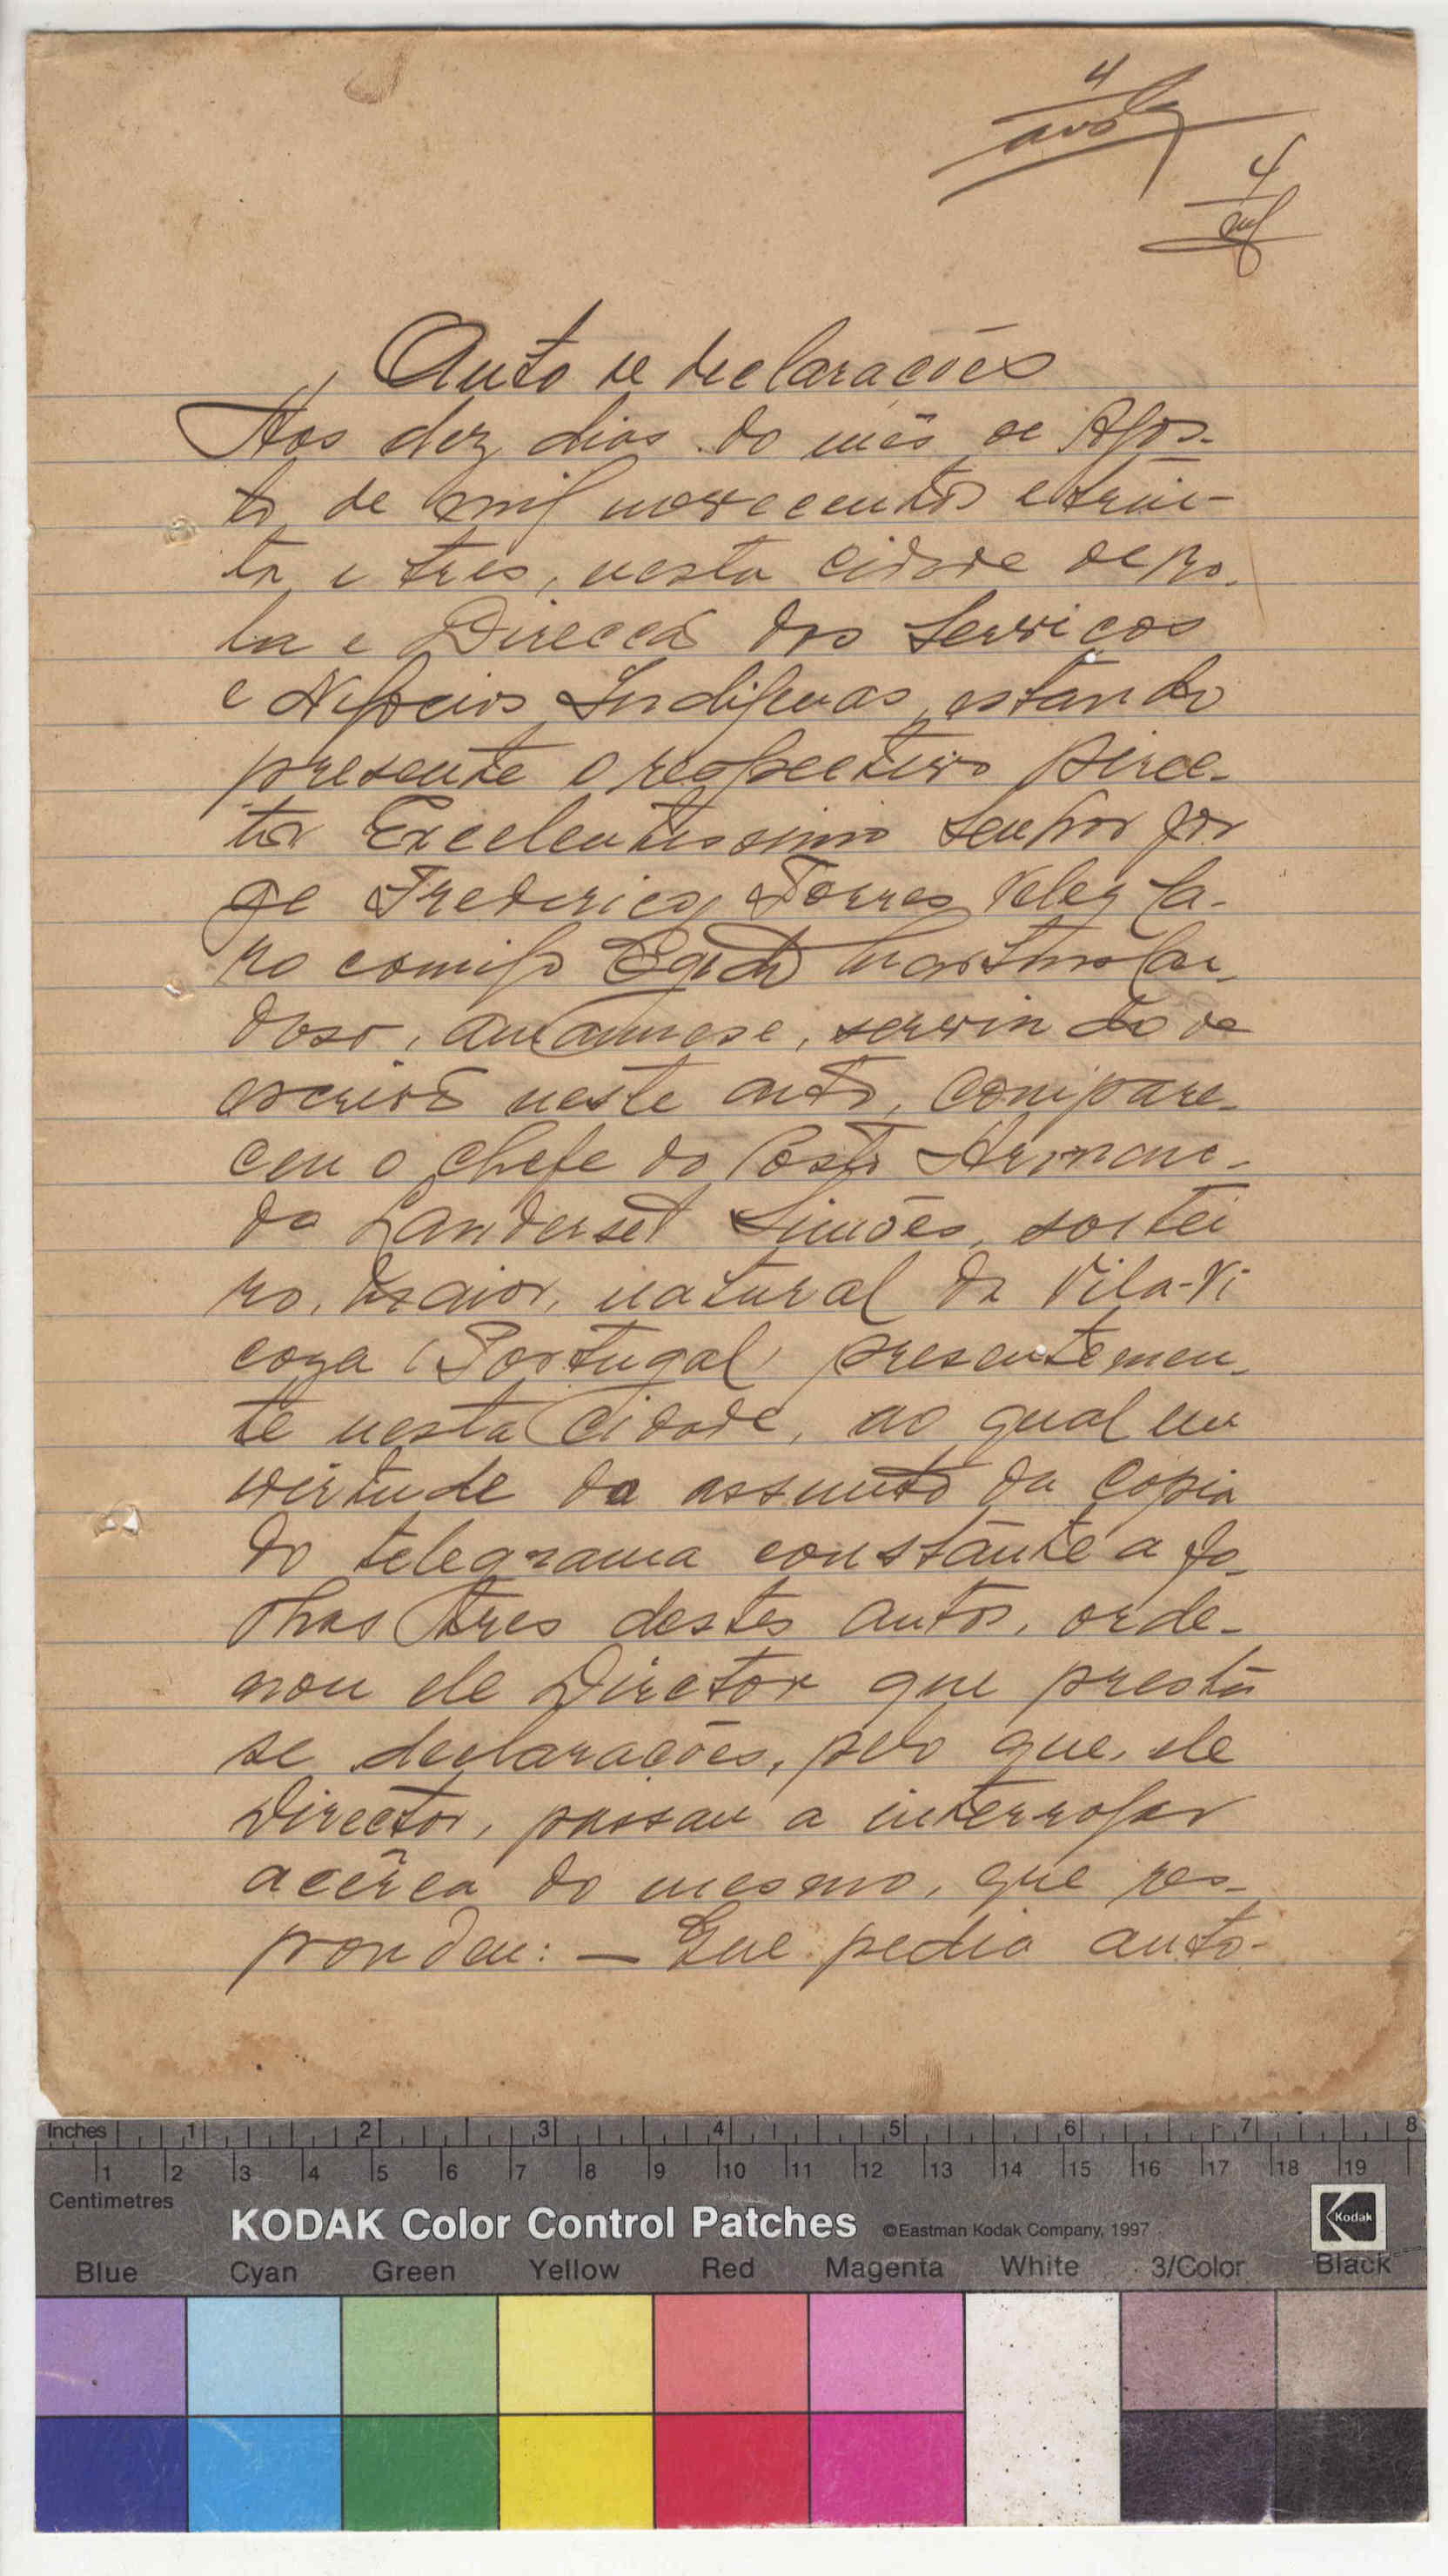 4
4
Auto de declarações
Aos dez dias do mês de Agos-
to de mil novecentos e trin-
ta e tres, nesta cidade de Bo-
la e Direcção dos Serviços
e Negocios Indigenas, estando
presente o respectivo Direc-
tor Excelentissimo Senhor Jor
ge Frederico Torres Velez Ca-
ro comigo Martins Car-
doso, amanuense, servindo de
escrivão neste auto, compare-
ceu o chefe do Posto Arman-
do Landerset Simões, soltei
ro, maior, natural de Vila-Vi
coza (Portugal) presentemen-
te nesta Cidade, ao qual em
virtude do assunto da copia
do telegrama constante a fo-
lhas tres destes autos, orde-
nou ele Director que prestas
se declarações, pelo que, ele
Director, passou a interrogar
acêrca do mesmo, que res-
pondeu: — Que pedia auto-
Inches 1 2 3 4 5 6 7 8
1 2 3 4 5 6 7 8 9 10 11 12 13 14 15 16 17 18 19
Centimetres
KODAK Color Control Patches ©Eastman Kodak Company, 1997 Kodak
Blue Cyan Green Yellow Red Magenta White 3/Color Black